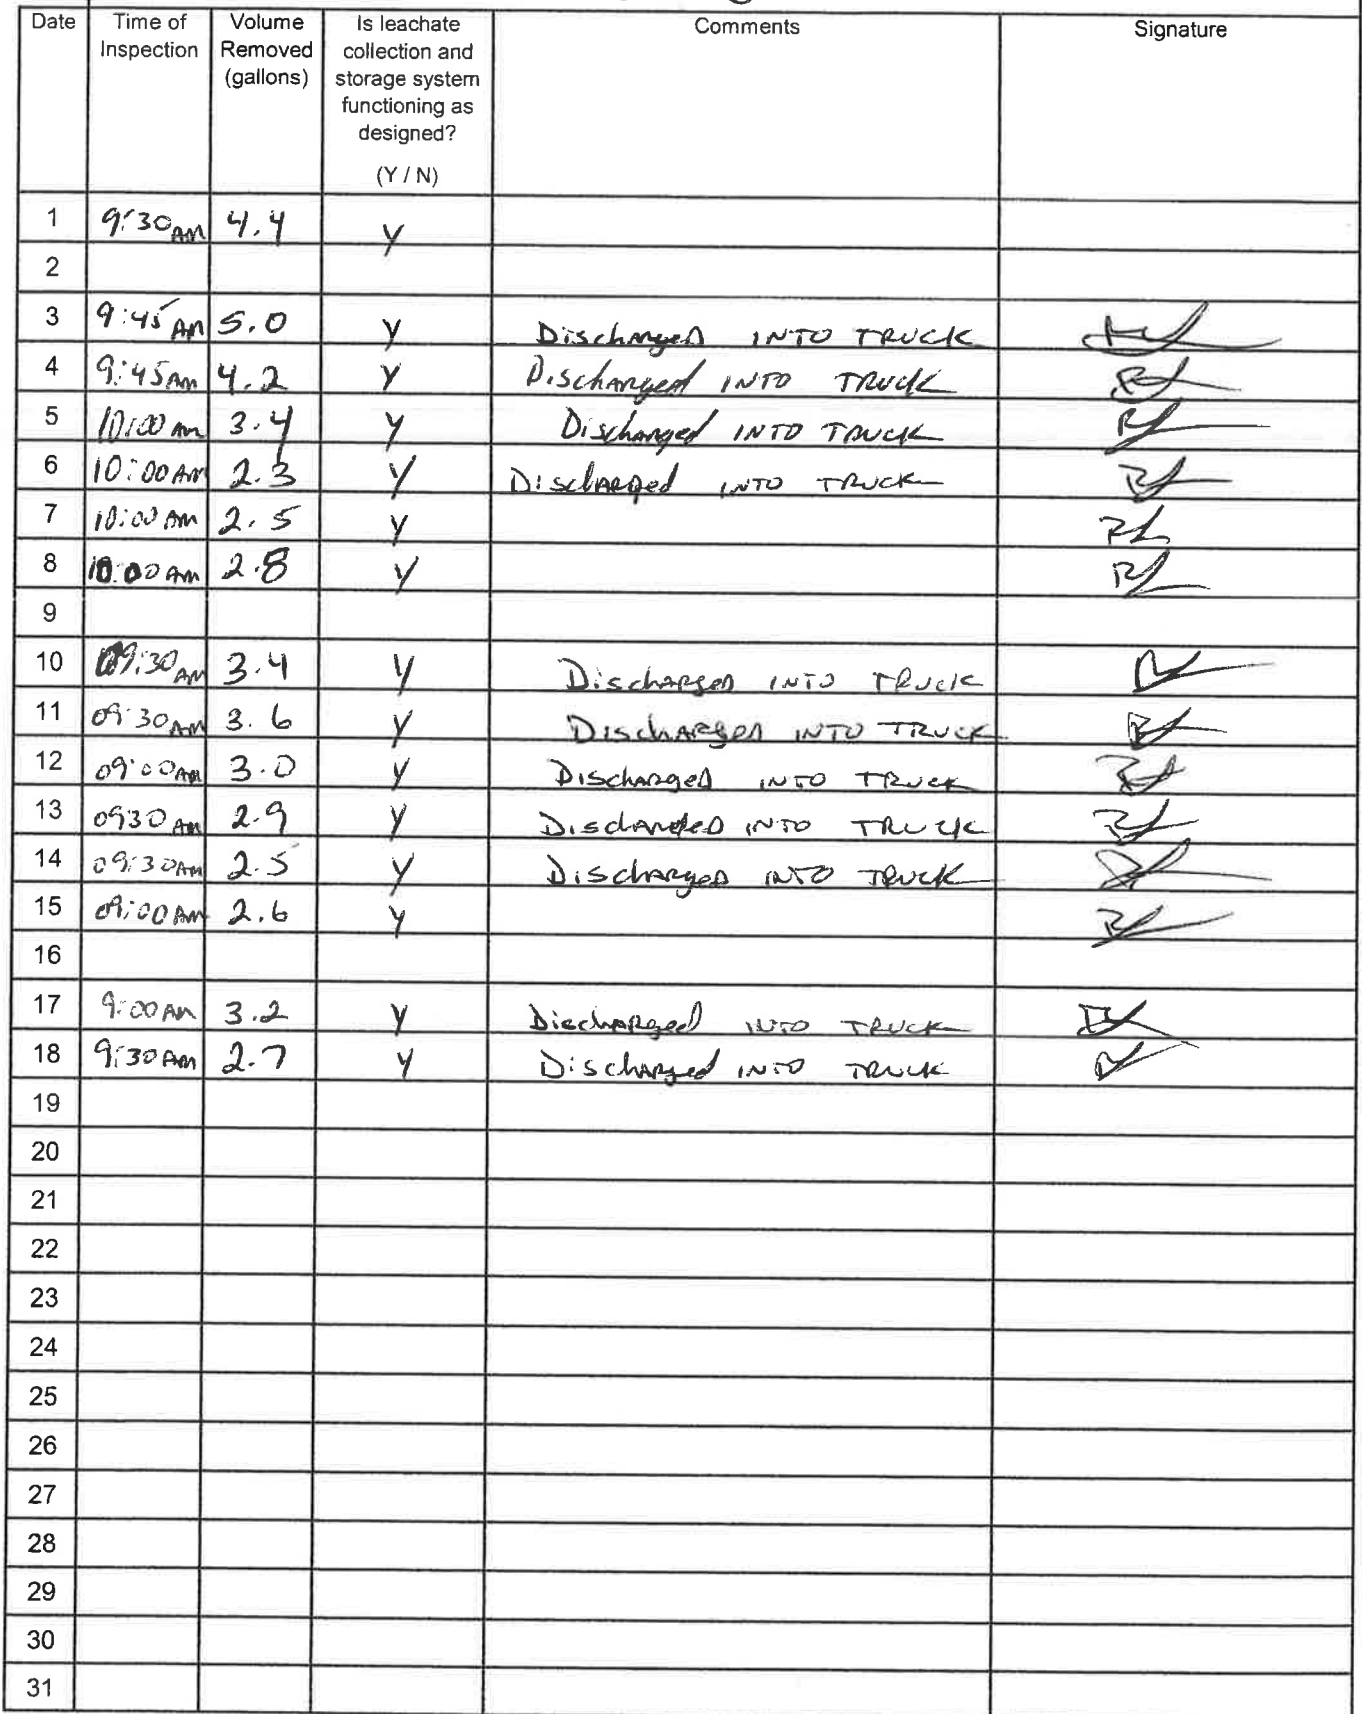 Date Time of Inspection Volume Removed (gallons) Is leachate collection and storage system functioning as designed? (Y / N) Comments Signature
1 9:30 AM 4.4 Y
2
3 9:45 AM 5.0 Y Discharged INTO TRUCK
4 9:45 AM 4.2 Y Discharged INTO TRUCK
5 10:00 AM 3.4 Y Discharged INTO TRUCK
6 10:00 AM 2.3 Y Discharged INTO TRUCK
7 10:00 AM 2.5 Y
8 10:00 AM 2.8 Y
9
10 09:30 AM 3.4 Y Discharged INTO TRUCK
11 09:30 AM 3.6 Y Discharged INTO TRUCK
12 09:00 AM 3.0 Y Discharged INTO TRUCK
13 0930 AM 2.9 Y Discharged INTO TRUCK
14 09:30 AM 2.5 Y Discharged INTO TRUCK
15 09:00 AM 2.6 Y
16
17 9:00 AM 3.2 Y Discharged INTO TRUCK
18 9:30 AM 2.7 Y Discharged INTO TRUCK
19
20
21
22
23
24
25
26
27
28
29
30
31